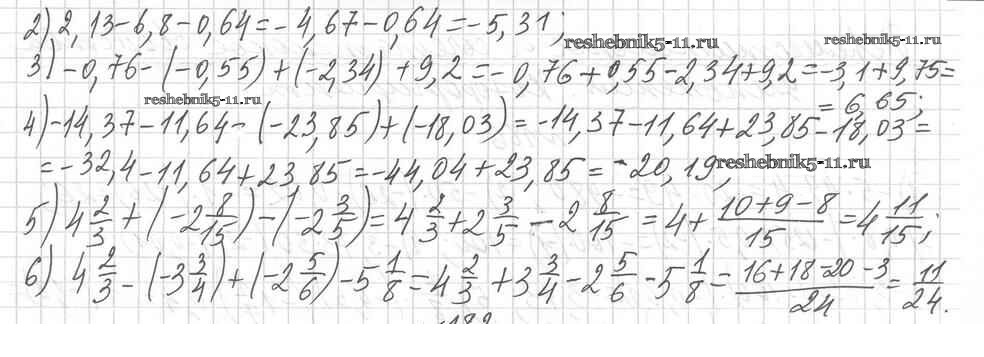 2) 2,13-6,8-0,64=-4,67-0,64=-5,31;
reshebnik5-11.ru
reshebnik5-11.ru
3) -0,76-(-0,55)+(-2,34)+9,2=-0,76+0,55-2,34+9,2=-3,1+9,75=
=6,65;
reshebnik5-11.ru
4) -14,37-11,64-(-23,85)+(-18,03)=-14,37-11,64+23,85-18,03=
=-32,4-11,64+23,85=-44,04+23,85=-20,19;
reshebnik5-11.ru
5) 4 2/3+(-2 8/15)-(-2 3/5)=4 2/3+2 3/5-2 8/15=4+(10+9-8)/15=4 11/15;
6) 4 2/3-(-3 3/4)+(-2 5/6)-5 1/8=4 2/3+3 3/4-2 5/6-5 1/8=(16+18-20-3)/24=11/24.